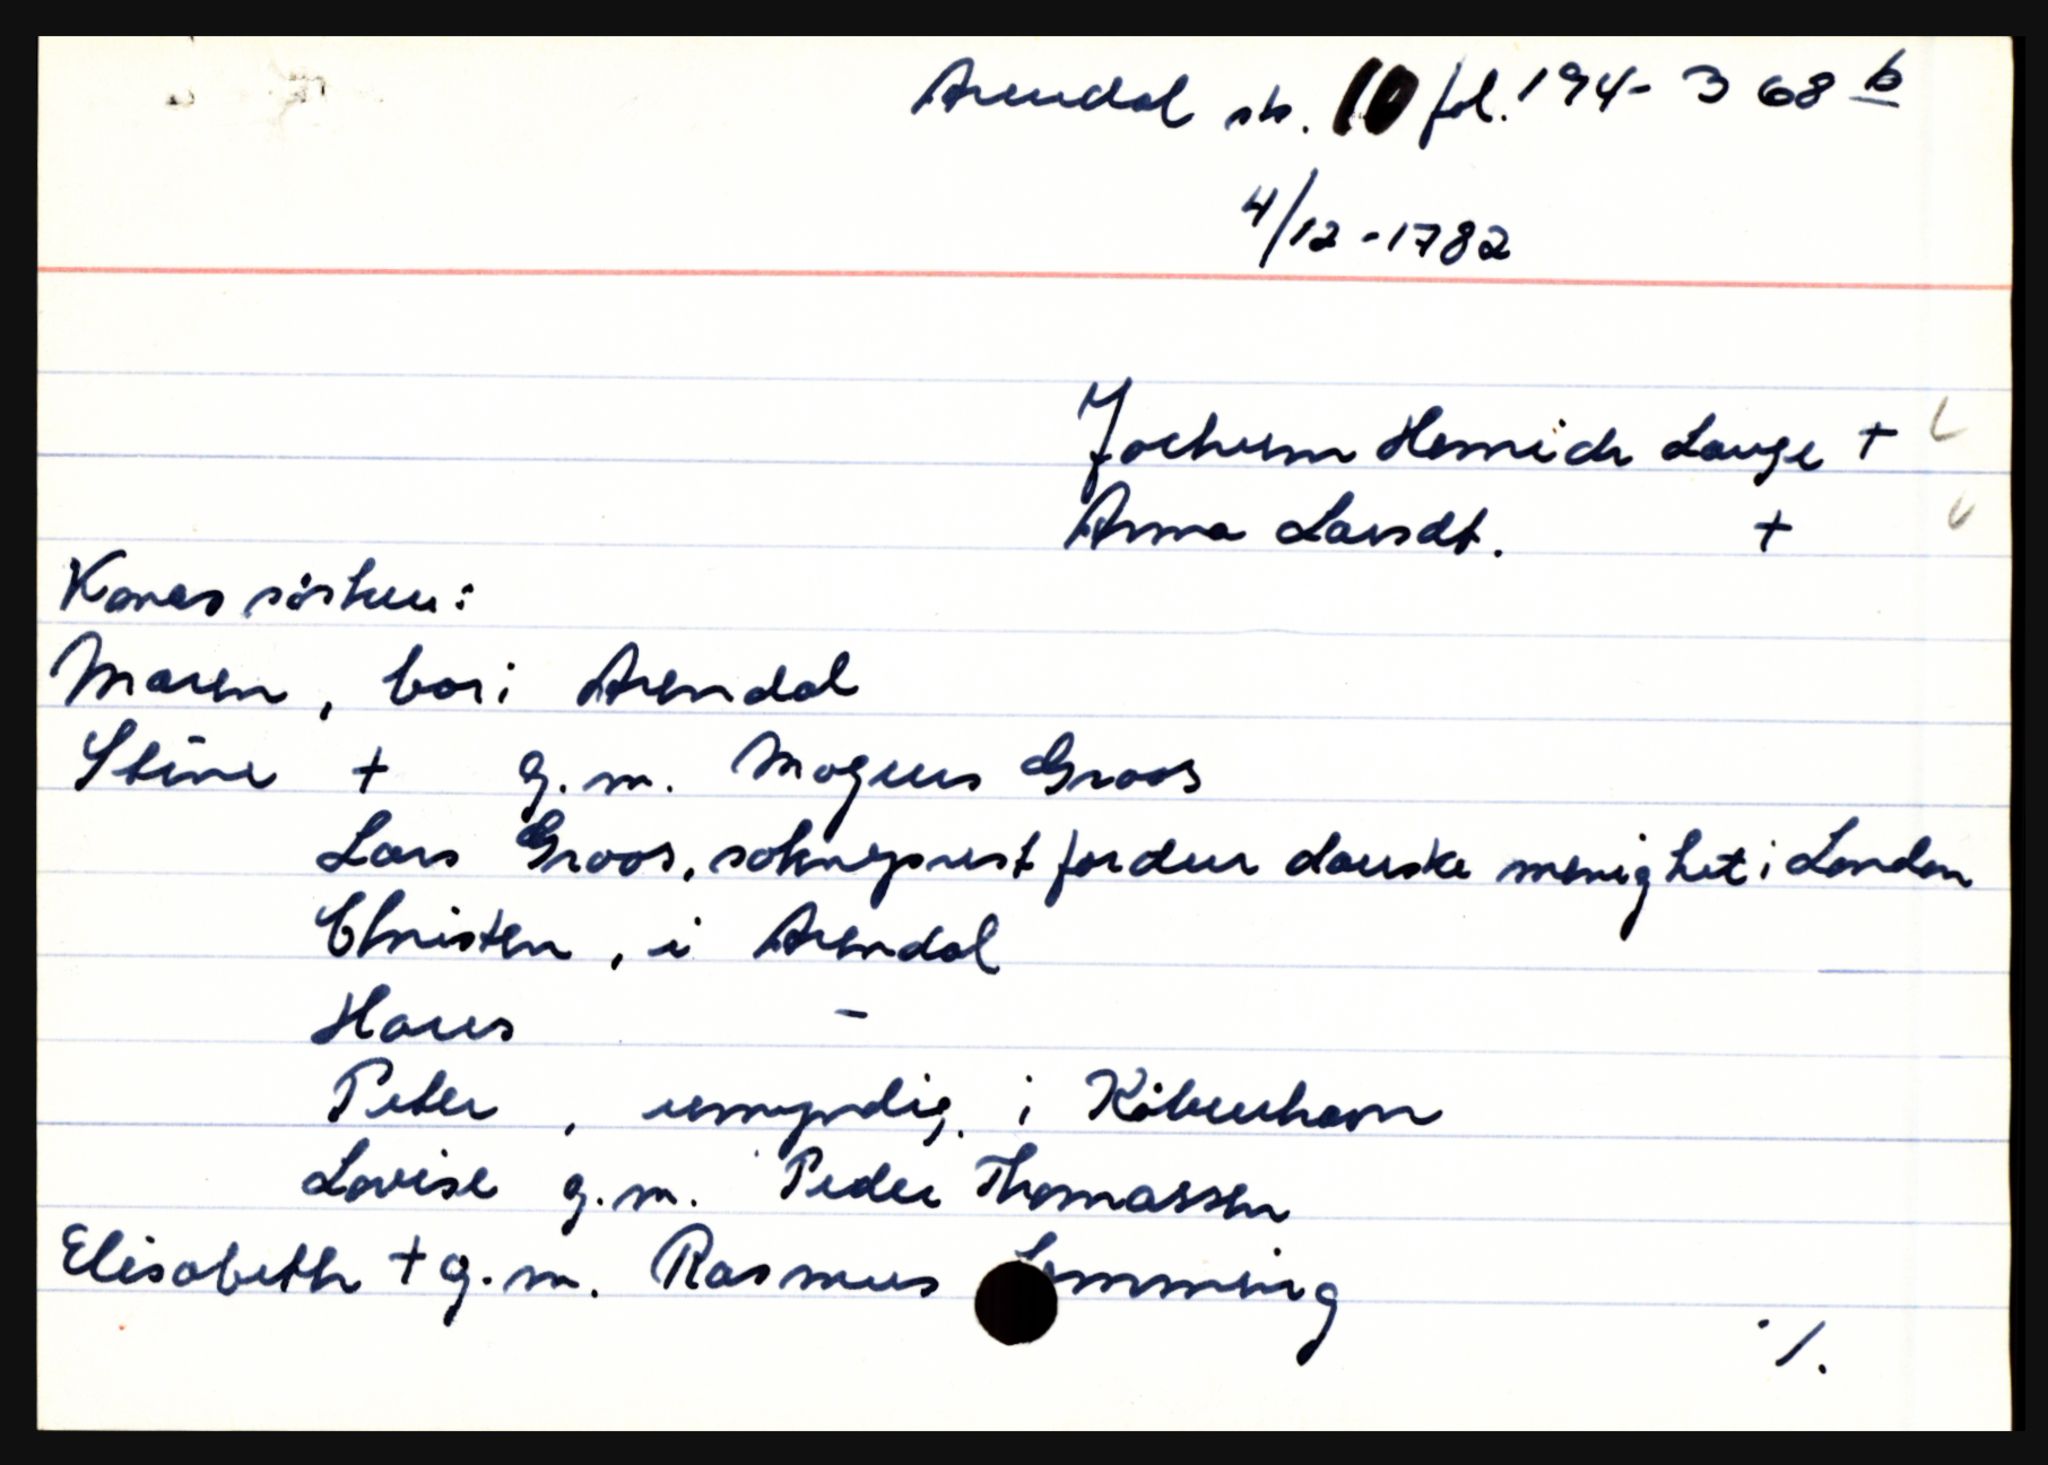 Arendal sk. 10 fol. 194-368 b
4/12-1782
Jochum Henrich Lange +
Anna Larsdt. +
Kones søsken:
Maren, bor i Arendal
Stine + g.m. Mogens Groos
Lars Groos, sokneprest for den danske menighet i London
Christen, i Arendal
Hans -
Peter, umyndig, i København
Lovise g.m. Peder Thomassen
Elisabeth + g.m. Rasmus Lemming
./.